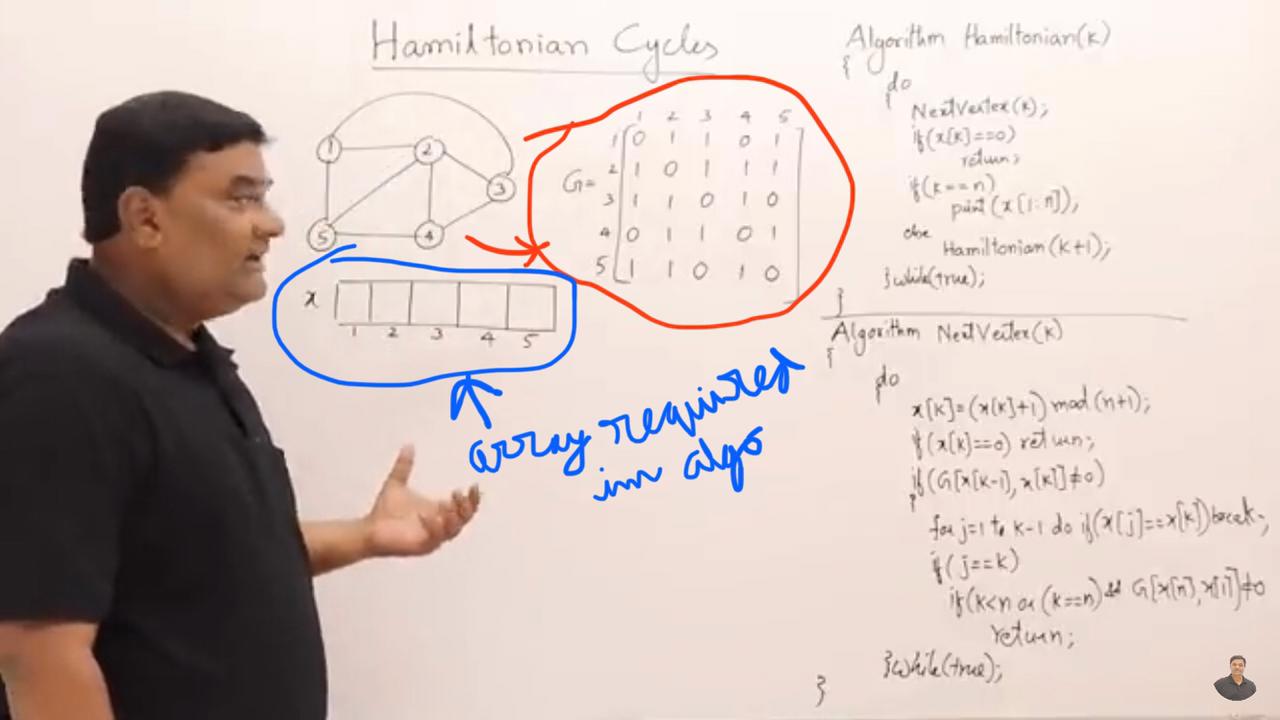 Hamiltonian Cycles
1
2
3
5
4
1 2 3 4 5
G=
1 0 1 1 0 1
2 1 0 1 1 1
3 1 1 0 1 0
4 0 1 1 0 1
5 1 1 0 1 0
x
1 2 3 4 5
array required
in algo
Algorithm Hamiltonian(k)
{
do
{
NextVertex(k);
if(x[k]==0)
return;
if(k==n)
print(x[1:n]);
else
Hamiltonian(k+1);
}while(true);
}
Algorithm NextVertex(k)
{
do
{
x[k]=(x[k]+1) mod (n+1);
if(x[k]==0) return;
if(G[x[k-1],x[k]]≠0)
{
for j=1 to k-1 do if(x[j]==x[k]) break;
if(j==k)
if(k<n or (k==n) && G[x[n],x[1]]≠0
return;
}while(true);
}